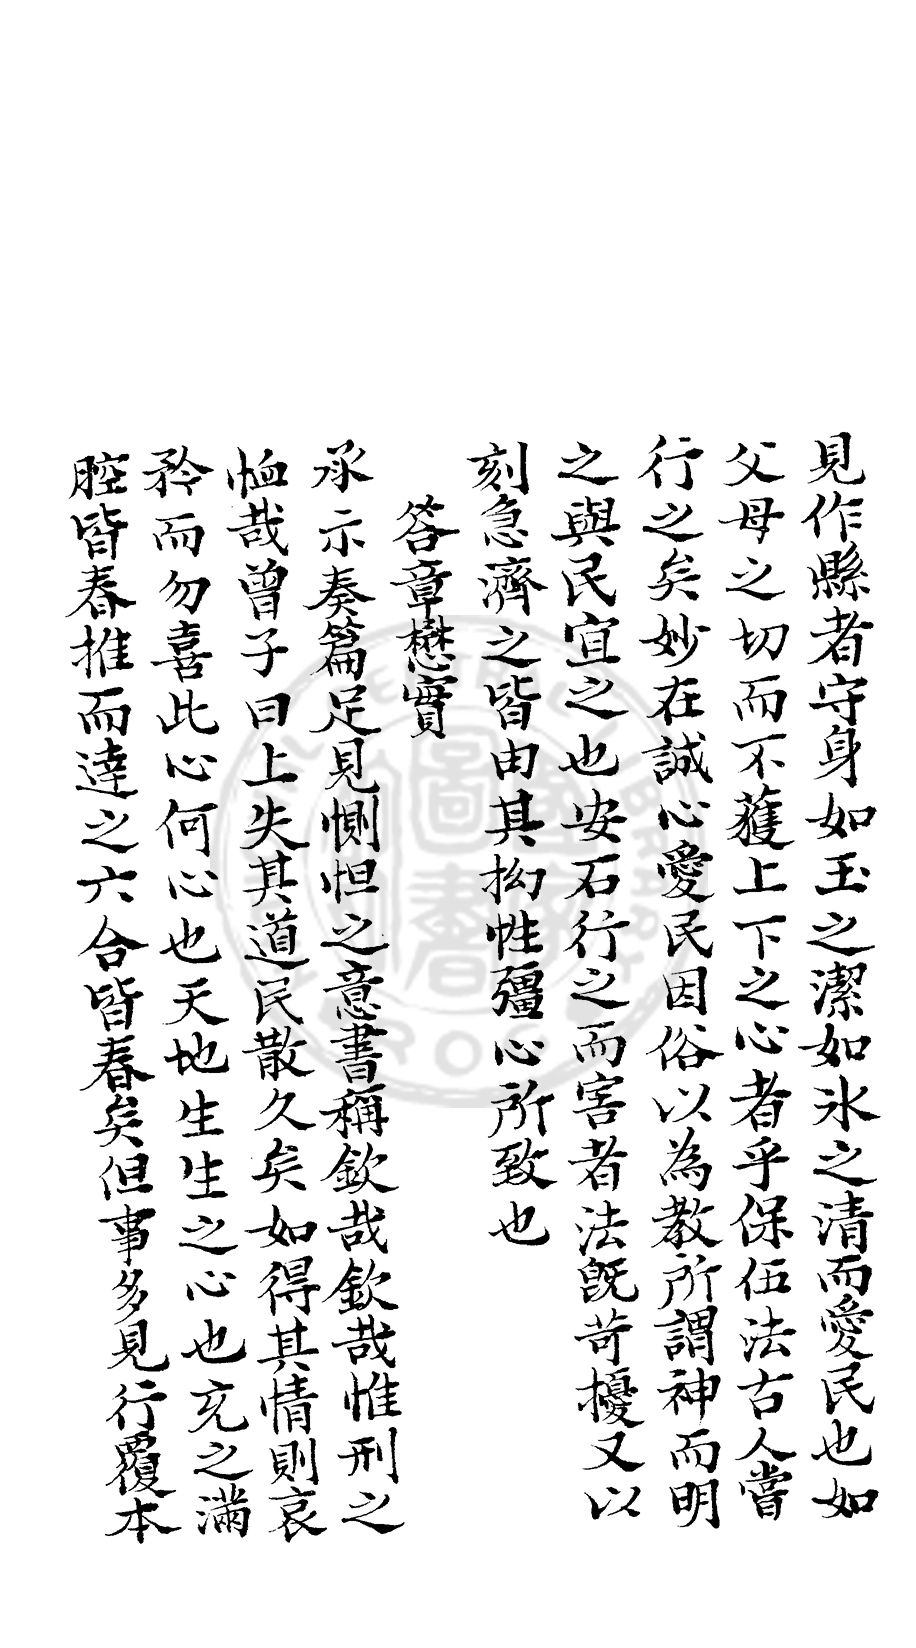 見作縣者守身如玉之潔如氷之清而愛民也如
父母之切而不蒦上下之心者乎保伍法古人嘗
行之矣妙在誠心愛民因俗以為教所謂神而明
之與民宜之也安石行之而害者法旣苛擾又以
刻急濟之皆由其拗性彊心所致也
答章懋實
承示奏篇足見惻怛之意書稱欽哉欽哉惟刑之
恤哉曾子曰上失其道民散久矣如得其情則哀
矜而勿喜此心何心也天地生生之心也充之滿
腔皆春推而達之六合皆春矣但事多見行覆本